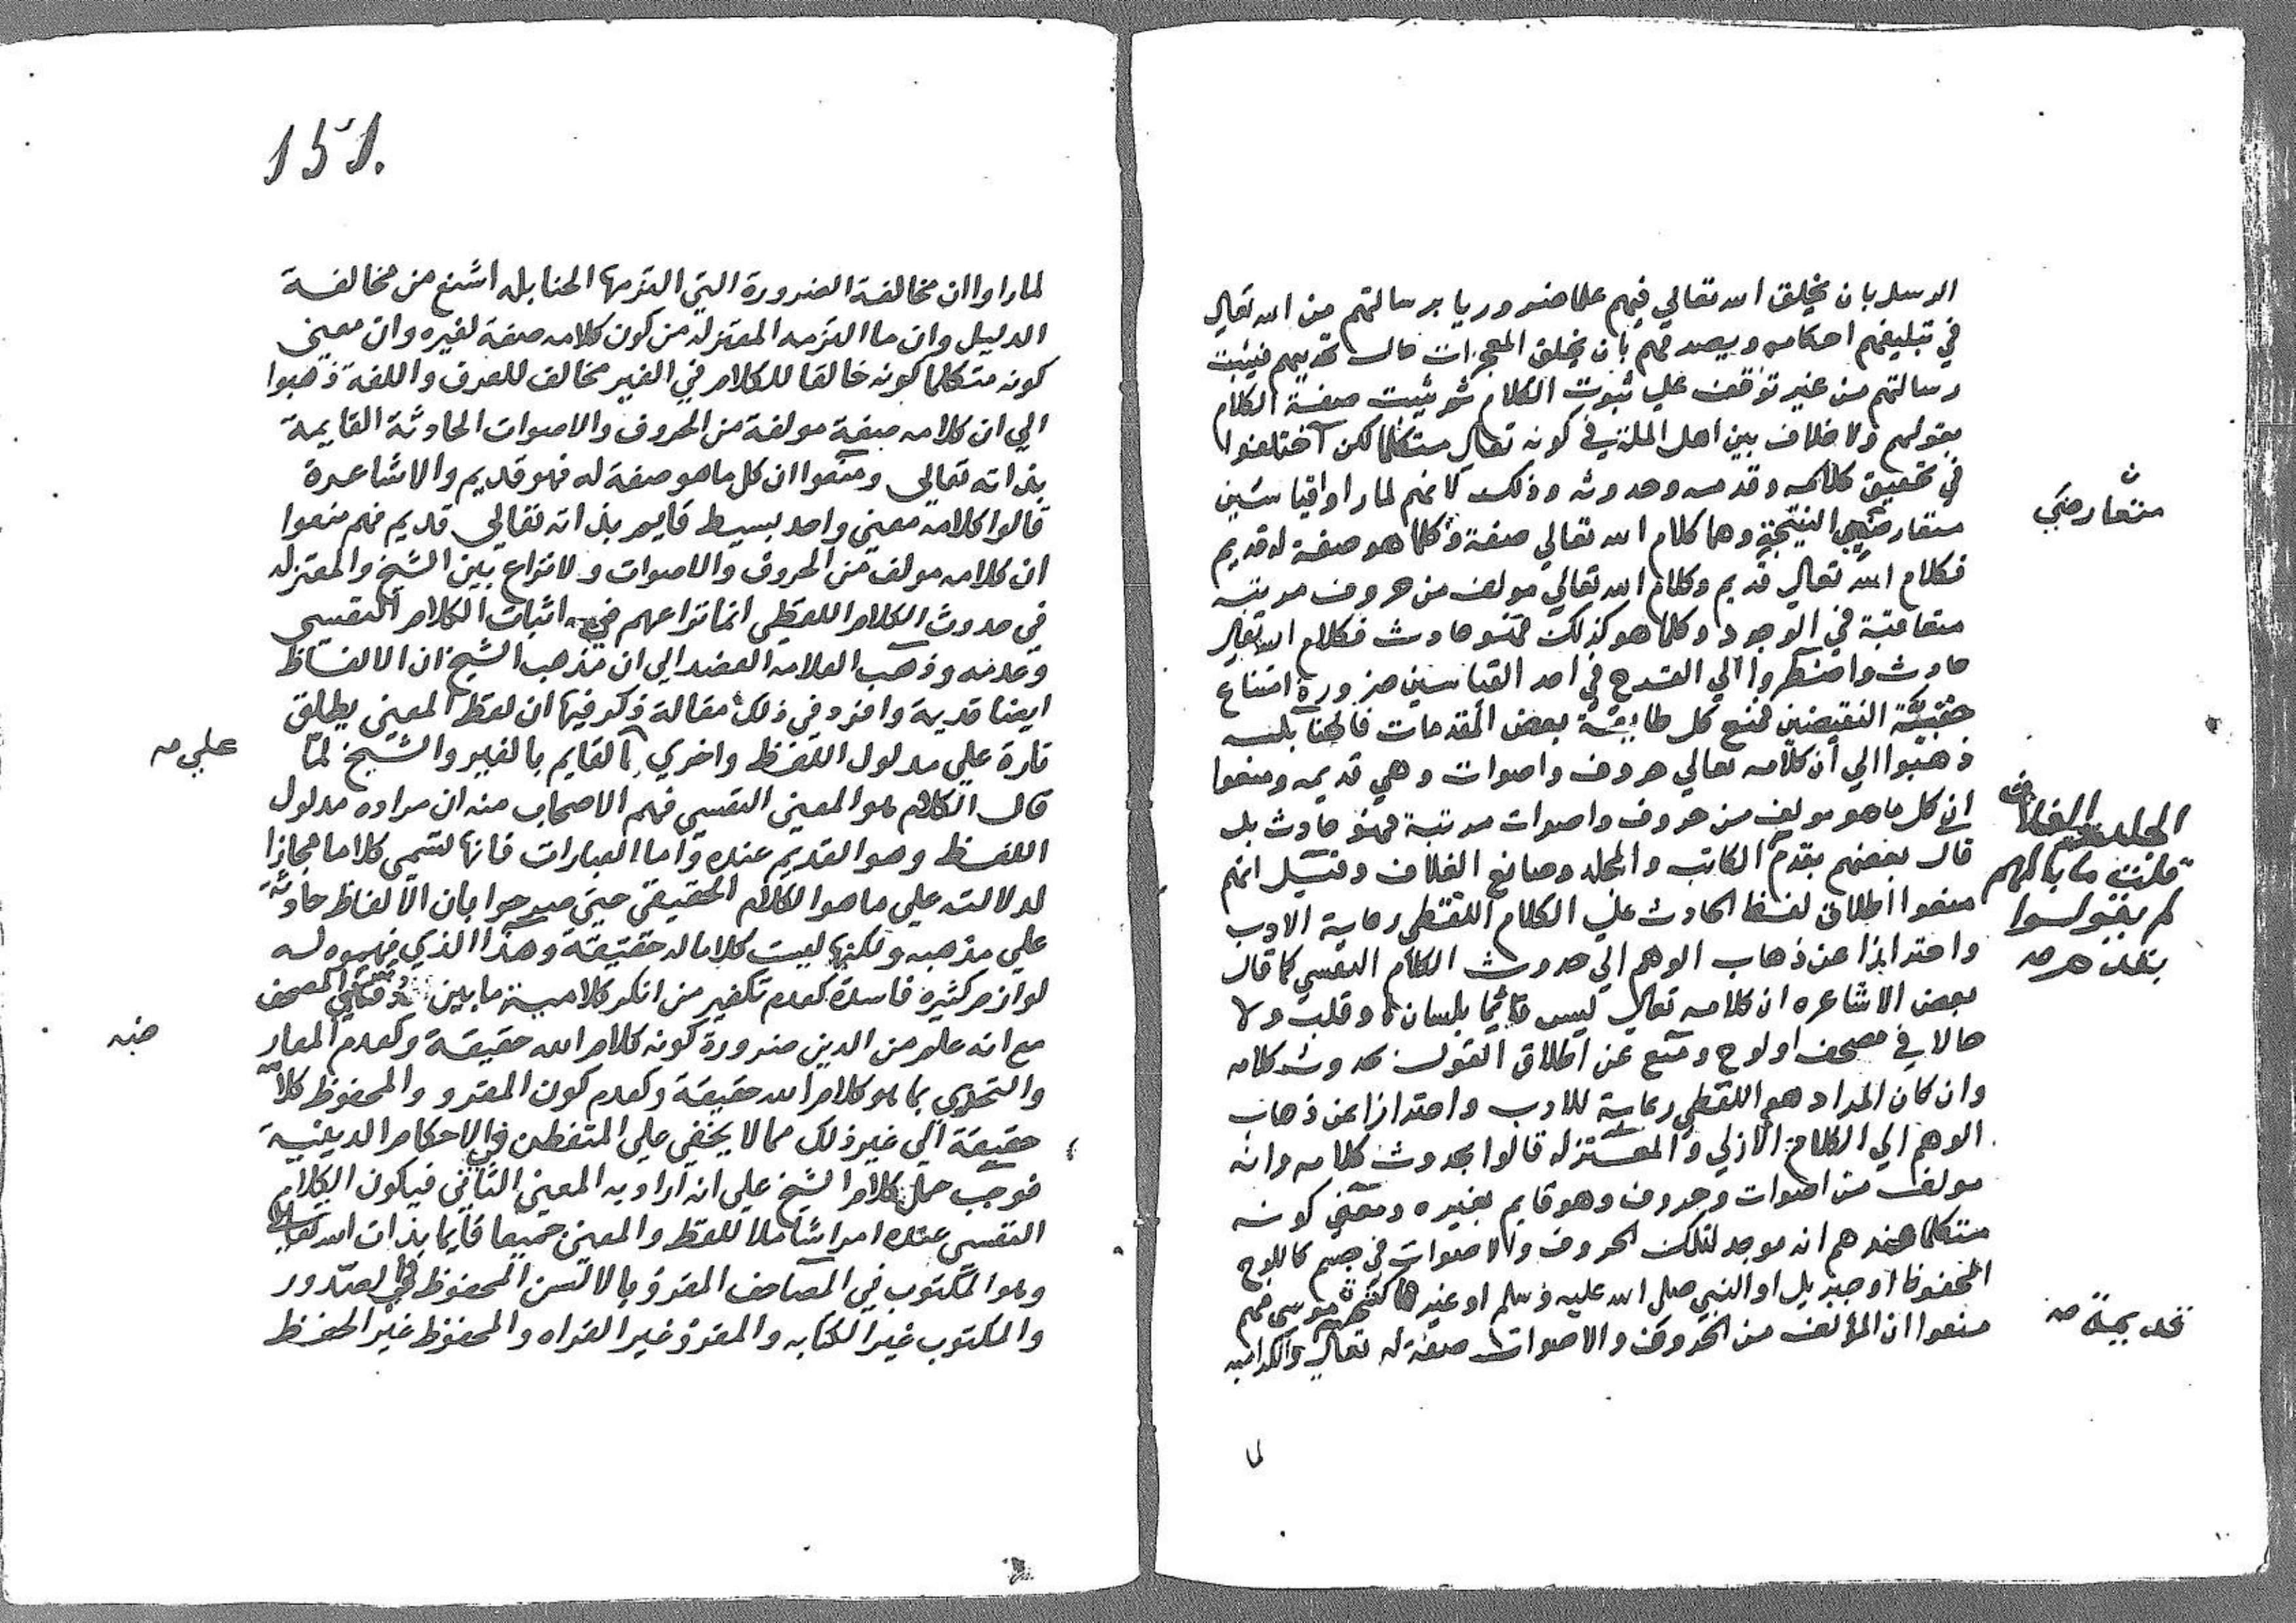 الرسل بان يخلق الله تعالي فيهم علما ضروريا برسالتهم من الله تعالي
في تبليغهم احكامه ويصدقهم بان يخلق المعجزات حال تحديهم فيثبت
رسالتهم من غير توقف علي ثبوت الكلام ثم يثبت صفة الكلام
بقولهم ولا خلاف بين اهل الملة في كونه تعالي متكلما لكن اختلفوا
في تحقيق كلامه وقدمه وحدوثه وذلك لانهم لما راوا قياسين
متعارضي النتيجة وهما كلام الله تعالي صفة وكلما هو صفة له قديم
فكلام الله تعالي قديم وكلام الله تعالي مولف من حروف مرتبة
متعاقبة في الوجود وكلما هو كذلك فهو حادث فكلام الله تعالي
حادث واضطروا الي القدح في احد القياسين ضرورة امتناع
حقيّة النقيضين فمنع كل طايفة بعض المقدمات فالحنابلـه
ذهبوا الي ان كلامه تعالي حروف واصوات وهي قديمه ومنعوا
ان كل ما هو مولف من حروف واصوات مرتبة فهو حادث بل
قال بعضهم بقدم الكاتب والمجلد وصانع الغلاف وقيل انهم
منعوا اطلاق لفظ الحادث علي الكلام اللفظي رعاية الادب
واحترازا عن ذهاب الوهم الي حدوث الكلام النفسي كما قال
بعض الاشاعره ان كلامه تعالي ليس قائما بلسان او قلب ولا
حالا في مصحف او لوح ومنع عن اطلاق القول بحدوث كلامه
وان كان المراد هو اللفظي رعاية للادب واحترازا عن ذهاب
الوهم الي الكلام الازلي والمعتزله قالوا بحدوث كلامه وانه
مولف من اصوات وحروف وهو قايم بغيره ومعني كونه
متكلما عندهم انه موجد لتلك الحروف والاصوات في جسم كاللوح
المحفوظ او جبريل او النبي صلي الله عليه وسلم او غيرها كشجرة موسي فهم
منعوا ان المؤلف من الحروف والاصوات صفة له تعالي والكراميه
لما
متعارضي
الجلد والغلاف
قلت ما بالهم
لم يقولوا
بقدم
قديمة صه
151.
لما راوا ان مخالفة الضرورة التي التزمها الحنابله اشنع من مخالفـة
الدليل وان ما التزمه المعتزله من كون كلامه صفة لغيره وان معني
كونه متكلما كونه خالقا للكلام في الغير مخالف للعرف واللغة ذهبوا
الي ان كلامه صفة مولفة من الحروف والاصوات الحادثة القايمة
بذاته تعالي ومنعوا ان كل ما هو صفة له فهو قديم والاشاعرة
قالوا كلامه معني واحد بسيط قايم بذاته تعالي قديم فهم منعوا
ان كلامه مولف من الحروف والاصوات ولا نزاع بين الشيخ والمعتزله
في حدوث الكلام اللفظي انما نزاعهم في اثبات الكلام النفسي
وعدمه وذهب العلامه العضد الي ان مذهب الشيخ ان الالفاظ
ايضا قديمة وافرد في ذلك مقالة ذكر فيها ان لفظ المعني يطلق
تارة علي مدلول اللفظ واخري القايم بالغير والشيخ لمّا
قال الكلام هو المعني النفسي فهم الاصحاب منه ان مراده مدلول
اللفظ وهو القديم عنده واما العبارات فانها تسمي كلاما مجازا
لدلالته علي ما هو الكلام الحقيقي حتي صرحوا بان الالفاظ حادثة
علي مذهبه ولكنها ليست كلاما له حقيقة وهذا الذي فهموه له
لوازم كثيره فاسدة كعدم تكفير من انكر كلامية ما بين دفتي المصحف
مع انه علم من الدين ضرورة كونه كلام الله حقيقة وكعدم المعار
والتحدي بما هو كلام الله حقيقة وكعدم كون المقرو والمحفوظ كلامه
حقيقة الي غير ذلك مما لا يخفي علي المتفطن في الاحكام الدينية
فوجب حمل كلام الشيخ علي انه اراد به المعني الثاني فيكون الكلام
النفسي عنده امرا شاملا للفظ والمعني جميعا قايما بذات الله تعالي
وهو المكتوب في المصاحف المقرؤ بالالسن المحفوظ في الصدور
والمكتوب غير الكتابه والمقرؤ غير القراه والمحفوظ غير الحفظ
علي صه
ضه